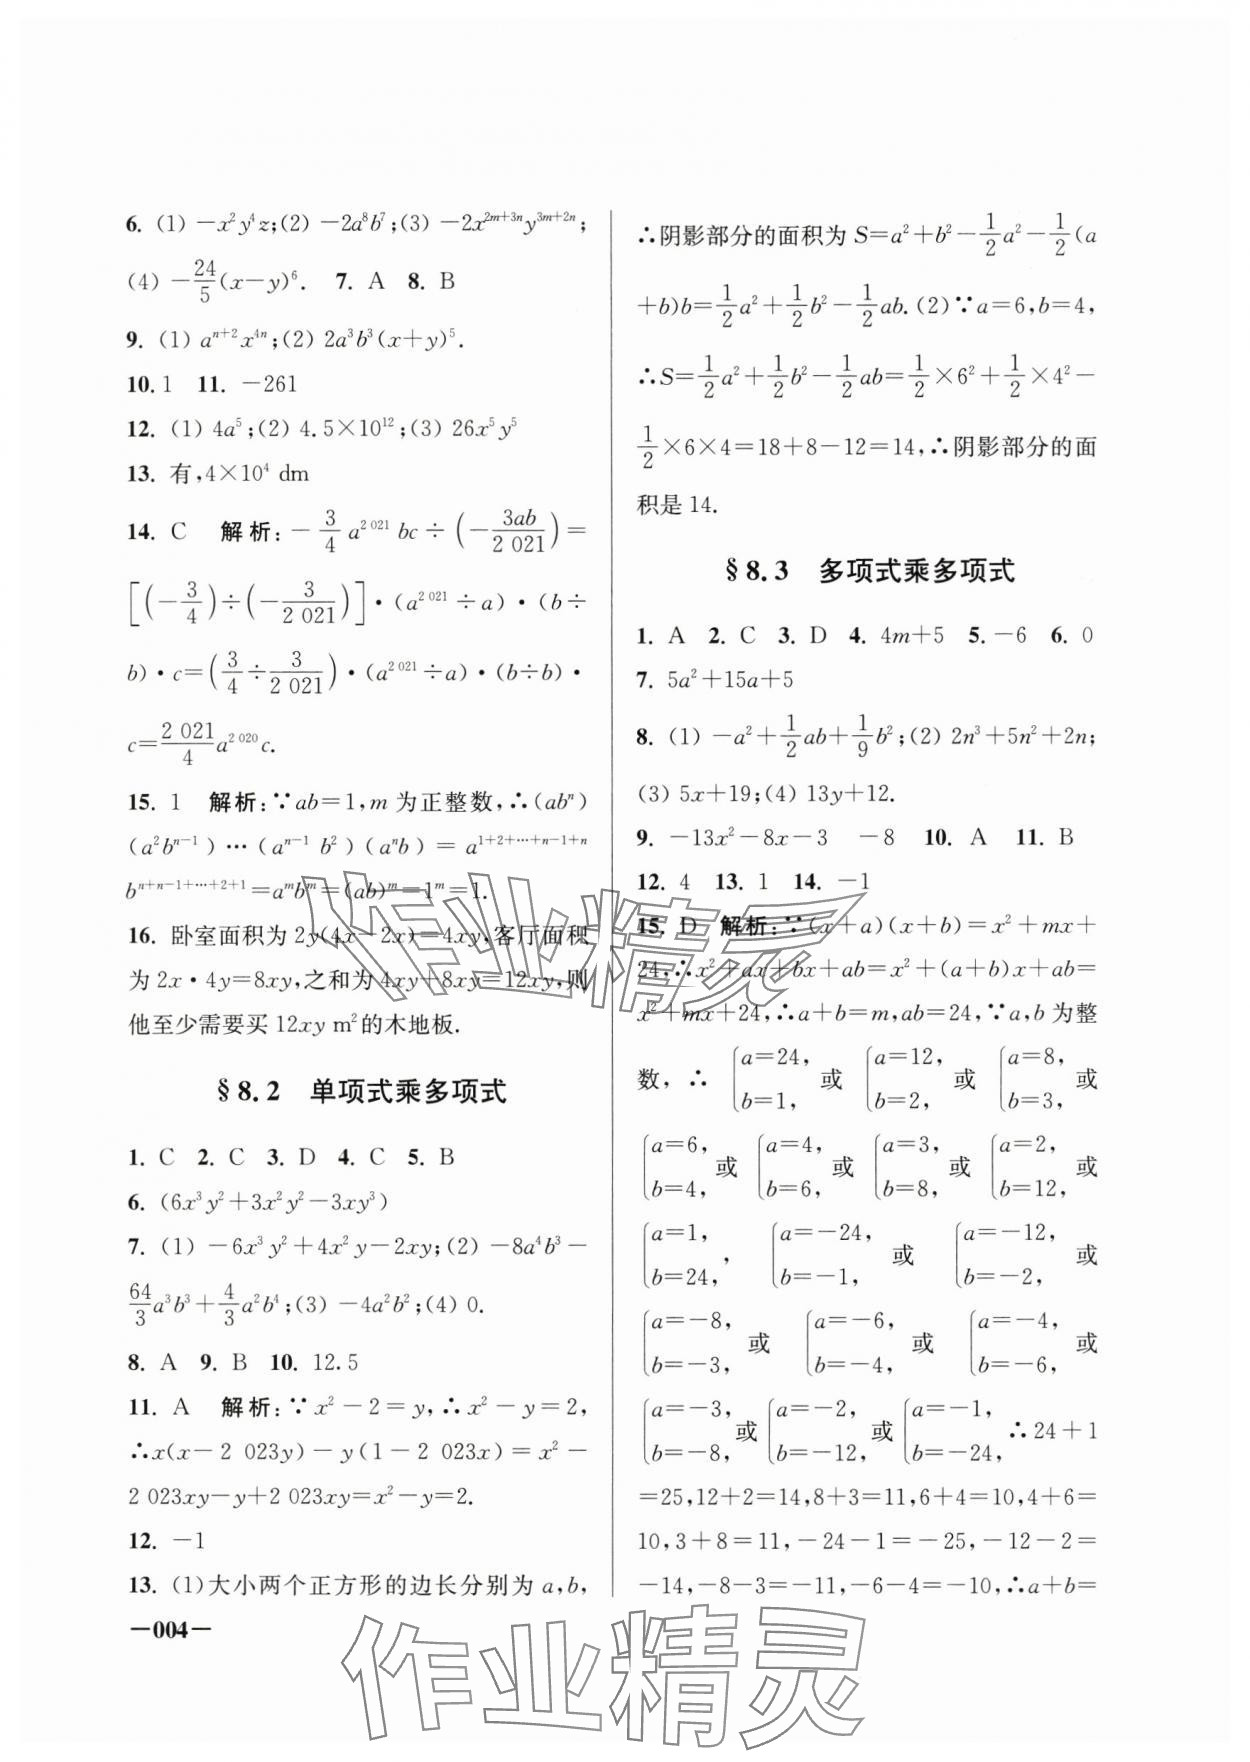 6. (1) −x²y⁴z;(2) −2a⁸b⁷;(3) −2x²ᵐ⁺³ⁿy³ᵐ⁺²ⁿ;
(4) −24/5(x−y)⁶. 7. A 8. B
9. (1) aⁿ⁺²x⁴ⁿ;(2) 2a³b³(x+y)⁵.
10. 1 11. −261
12. (1) 4a⁵;(2) 4.5×10¹²;(3) 26x⁵y⁵
13. 有,4×10⁴ dm
14. C 解析:−3/4 a^{2 021} bc÷(−3ab/2 021)=
[(−3/4)÷(−3/2 021)]·(a^{2 021}÷a)·(b÷
b)·c=(3/4÷3/2 021)·(a^{2 021}÷a)·(b÷b)·
c=2 021/4 a^{2 020}c.
15. 1 解析:∵ab=1,m 为正整数,∴(abⁿ)
(a²bⁿ⁻¹)…(aⁿ⁻¹ b²)(aⁿb)=a^{1+2+…+n−1+n}
b^{n+n−1+…+2+1}=aᵐbᵐ=(ab)ᵐ=1ᵐ=1.
16. 卧室面积为 2y(4x−2x)=4xy,客厅面积
为 2x·4y=8xy,之和为 4xy+8xy=12xy,则
他至少需要买 12xy m²的木地板.
§8.2 单项式乘多项式
1. C 2. C 3. D 4. C 5. B
6. (6x³y²+3x²y²−3xy³)
7. (1) −6x³y²+4x²y−2xy;(2) −8a⁴b³−
64/3 a³b³+4/3 a²b⁴;(3) −4a²b²;(4) 0.
8. A 9. B 10. 12.5
11. A 解析:∵x²−2=y,∴x²−y=2,
∴x(x−2 023y)−y(1−2 023x)=x²−
2 023xy−y+2 023xy=x²−y=2.
12. −1
13. (1)大小两个正方形的边长分别为 a,b,
—004—
∴阴影部分的面积为 S=a²+b²−1/2 a²−1/2(a
+b)b=1/2 a²+1/2 b²−1/2 ab.(2)∵a=6,b=4,
∴S=1/2 a²+1/2 b²−1/2 ab=1/2×6²+1/2×4²−
1/2×6×4=18+8−12=14,∴阴影部分的面
积是 14.
§8.3 多项式乘多项式
1. A 2. C 3. D 4. 4m+5 5. −6 6. 0
7. 5a²+15a+5
8. (1) −a²+1/2 ab+1/9 b²;(2) 2n³+5n²+2n;
(3) 5x+19;(4) 13y+12.
9. −13x²−8x−3 −8 10. A 11. B
12. 4 13. 1 14. −1
15. D 解析:∵(x+a)(x+b)=x²+mx+
24,∴x²+ax+bx+ab=x²+(a+b)x+ab=
x²+mx+24,∴a+b=m,ab=24,∵a,b 为整
数,∴ {a=24, b=1, 或 {a=12, b=2, 或 {a=8, b=3, 或
{a=6, b=4, 或 {a=4, b=6, 或 {a=3, b=8, 或 {a=2, b=12, 或
{a=1, b=24, , {a=−24, b=−1, 或 {a=−12, b=−2, 或
{a=−8, b=−3, 或 {a=−6, b=−4, 或 {a=−4, b=−6, 或
{a=−3, b=−8, 或 {a=−2, b=−12, 或 {a=−1, b=−24, ∴24+1
=25,12+2=14,8+3=11,6+4=10,4+6=
10,3+8=11,−24−1=−25,−12−2=
−14,−8−3=−11,−6−4=−10,∴a+b=
作业精灵
作业精灵